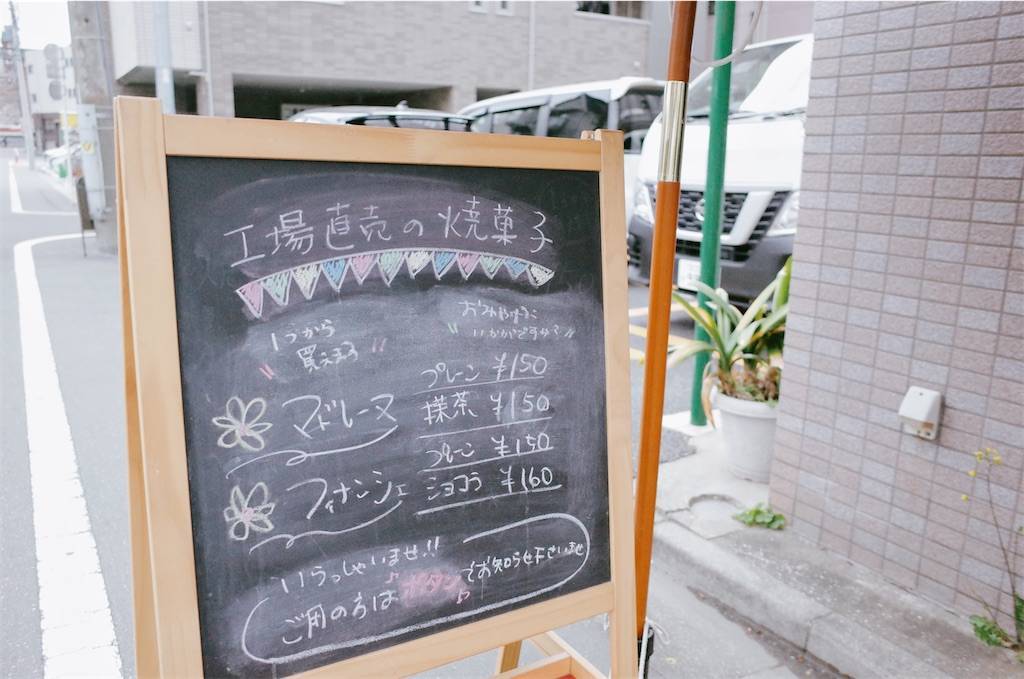 工場直売の焼菓子
1つから
買えます
おみやげに
いかがですか?
マドレーヌ
プレーン ¥150
抹茶 ¥150
フィナンシェ
プレーン ¥150
ショコラ ¥160
いらっしゃいませ!!
ご用の方はボタンでお知らせ下さいませ